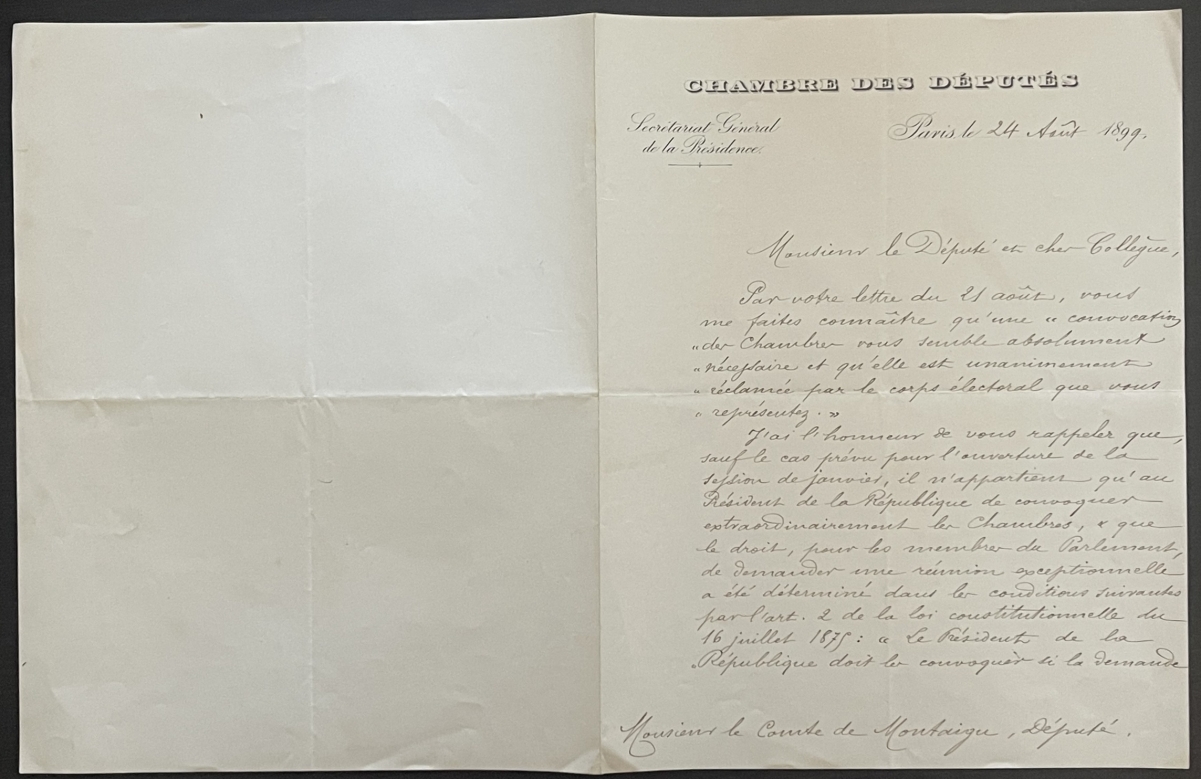 CHAMBRE DES DÉPUTÉS
Secrétariat Général
de la Présidence.
Paris, le 24 Août 1899.
Monsieur le Député et cher Collègue,
Par votre lettre du 21 août, vous
me faites connaître qu'une « convocation
« des Chambres vous semble absolument
« nécessaire et qu'elle est unanimement
« réclamée par le corps électoral que vous
« représentez. »
J'ai l'honneur de vous rappeler que,
sauf le cas prévu pour l'ouverture de la
session de janvier, il n'appartient qu'au
Président de la République de convoquer
extraordinairement les Chambres, & que
le droit, pour les membres du Parlement,
de demander une réunion exceptionnelle
a été déterminé dans les conditions suivantes
par l'art. 2 de la loi constitutionnelle du
16 juillet 1875 : « Le Président de la
« République doit les convoquer si la demande
Monsieur le Comte de Montaigu, Député.